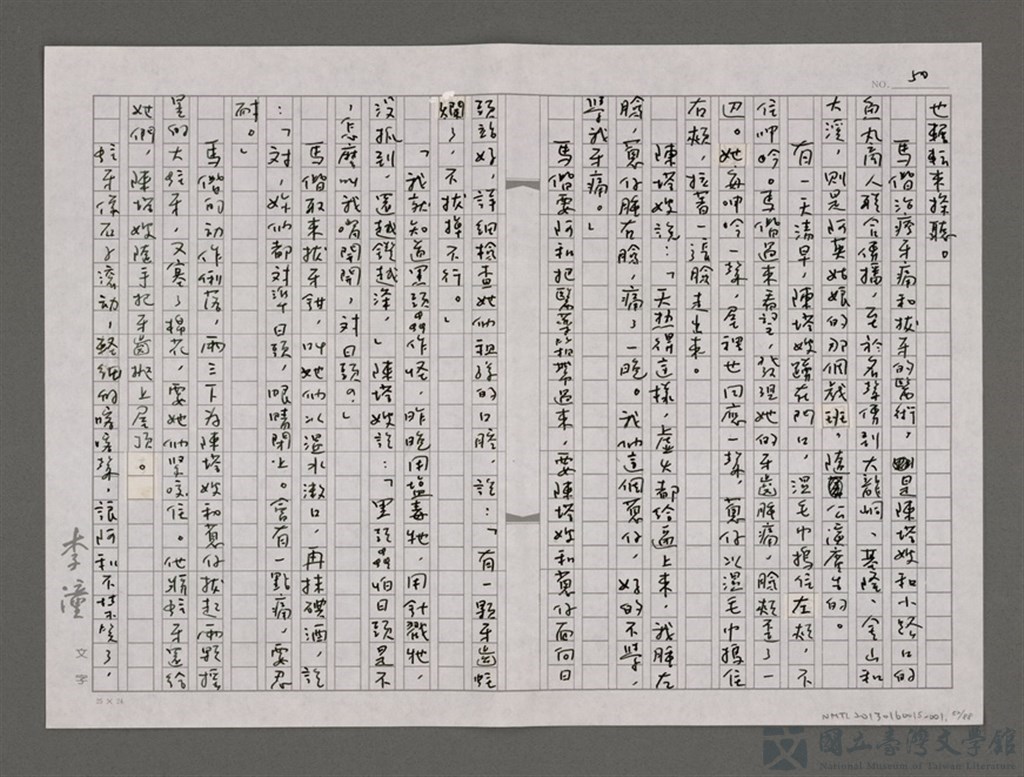 NO. 50
也輕鬆來探聽。
馬偕治療牙痛和拔牙的醫術，是陳塔嫂和小路口的
魚丸商人聯合傳播，至於名聲傳到大龍峒、基隆、金山和
大溪，則是阿英姑娘的那個戲班，隨公演產生的。
有一天清早，陳塔嫂蹲在門口，濕毛巾摀住左頰，不
住呻吟。馬偕過來看望，發現她的牙齒腫痛，臉頰歪了一
邊。她每呻吟一聲，屋裡也回應一聲，蔥仔以濕毛巾摀住
右頰，拉著一張臉走出來。
陳塔嫂說：「天熱得這樣，虛火都給逼上來，我腫左
臉，蔥仔腫右臉，痛了一晚。我們這個蔥仔，好的不學，
學我牙痛。」
馬偕要阿和把醫藥箱帶過來，要陳塔嫂和蔥仔面向日
頭站好，詳細檢查她們租的口腔，說：「有一顆牙齒蛀
爛了，不拔掉不行。」
「我就知道黑頭蟲作怪，昨晚用鹽毒牠，用針戳牠，
沒抓到，還越鑽越深，」陳塔嫂說：「黑頭蟲怕日頭是不
，怎麼叫我嘴開開，對日頭？」
馬偕取來拔牙鉗，叫她們以溫水漱口，再抹碘酒，說
：「對，妳們都對準日頭，眼睛閉上。會有一點痛，要忍
耐。」
馬偕的動作俐落，兩三下為陳塔嫂和蔥仔拔起兩顆搖
晃的大蛀牙，又塞了棉花，要她們緊咬住。他將蛀牙還給
她們，陳塔嫂隨手把牙齒拋上屋頂。
蛀牙像石子滾動，輕細的喀喀聲，讓阿和不禁笑了，
李潼
文字
25 × 24
NMTL20130160015-001, 50/88
國立臺灣文學館
National Museum of Taiwan Literature